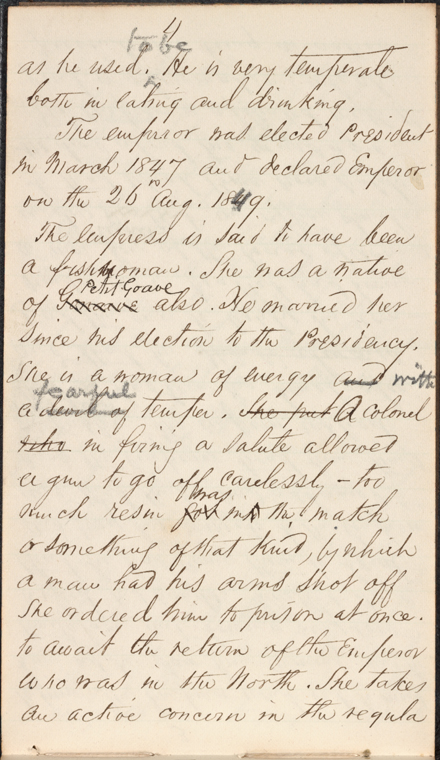 4
to be
as he used. He is very temperate
both in eating and drinking.
The emperor was elected President
in March 1847 and declared Emperor
on the 26th Aug. 1849.
The Empress is said to have been
a fish woman. She was a native
Petit Goave
of Gonaive also. He married her
since his election to the Presidency.
She is a woman of energy and with
fearful
a devil of temper. She put A colonel
who in firing a salute allowed
a gun to go off carelessly - too
was
much resin for in the match
or something of that kind, by which
a man had his arms shot off
She ordered him to prison at once.
to await the return of the Emperor
who was in the North. She takes
an active concern in the regula